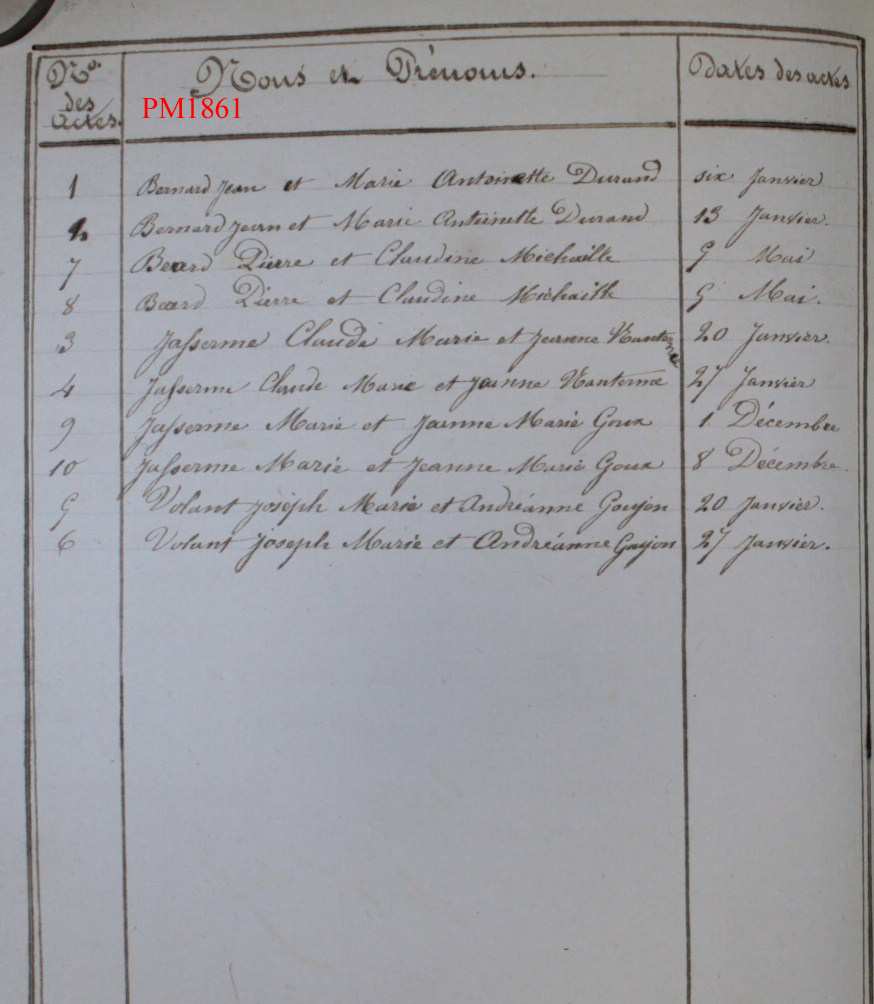 Nos des Actes. Noms et Prénoms. Dates des actes
PM1861
1 Bernard Jean et Marie Antoinette Durand six Janvier
2 Bernard Jean et Marie Antoinette Durand 13 Janvier.
7 Beard Pierre et Claudine Michaille 5 Mai
8 Beard Pierre et Claudine Michaille 5 Mai.
3 Jasserme Claude Marie et Jeanne Nanterme 20 Janvier.
4 Jasserme Claude Marie et Jeanne Nanterme 27 Janvier
9 Jasserme Marie et Jeanne Marie Goux 1 Décembre
10 Jasserme Marie et Jeanne Marie Goux 8 Décembre.
5 Volant Joseph Marie et Andréanne Goujon 20 Janvier.
6 Volant Joseph Marie et Andréanne Goujon 27 Janvier.